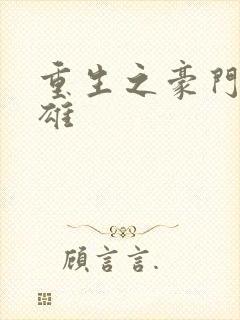 重生之豪門
雄
顧言言.